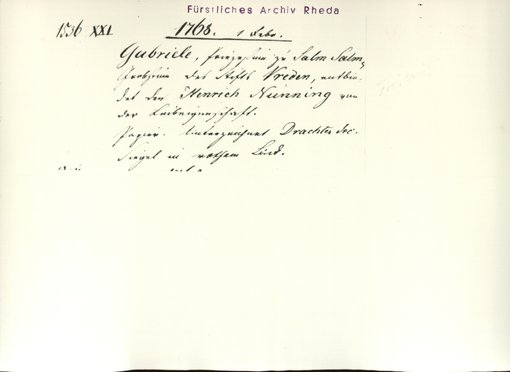 Fürstliches Archiv Rheda
1536 XXI. 1768. 1 Febr.
Gabriele, Prinzessin zu Salm Salm,
des Stifts Vreden, entbin-
det den Henrich Nünning von
der Leibeigenschaft.
Papier. Unterzeichnet Drachter Sec.
Siegel in rothem Lack.